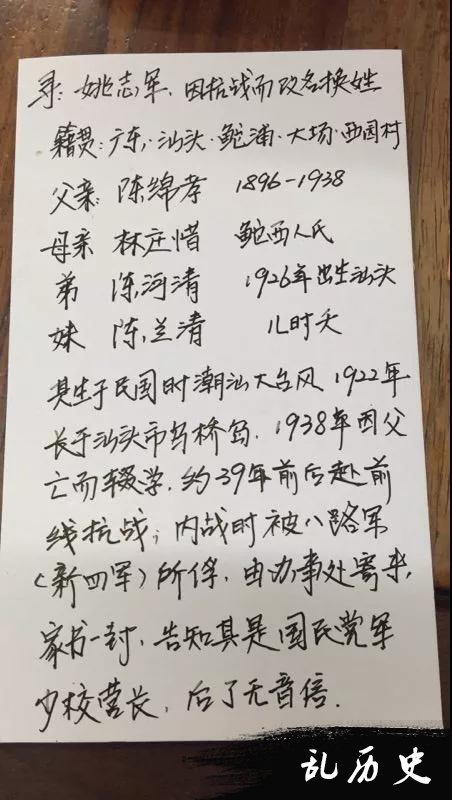 寻：姚志军，因抗战而改名换姓
籍贯：广东·汕头·鮀浦·大场·西园村
父亲：陈绵孝 1896-1938
母亲 林庄惜 鮀西人氏
弟 陈河清 1926年出生汕头
妹 陈兰清 儿时夭
其生于民国时潮汕大台风 1922年
长于汕头市乌桥岛，1938年因父
亡而辍学，约39年前后赴前
线抗战；内战时被八路军
（新四军）所俘，由办事处寄来，
家书一封，告知其是国民党军
少校营长，后了无音信．
乱历史